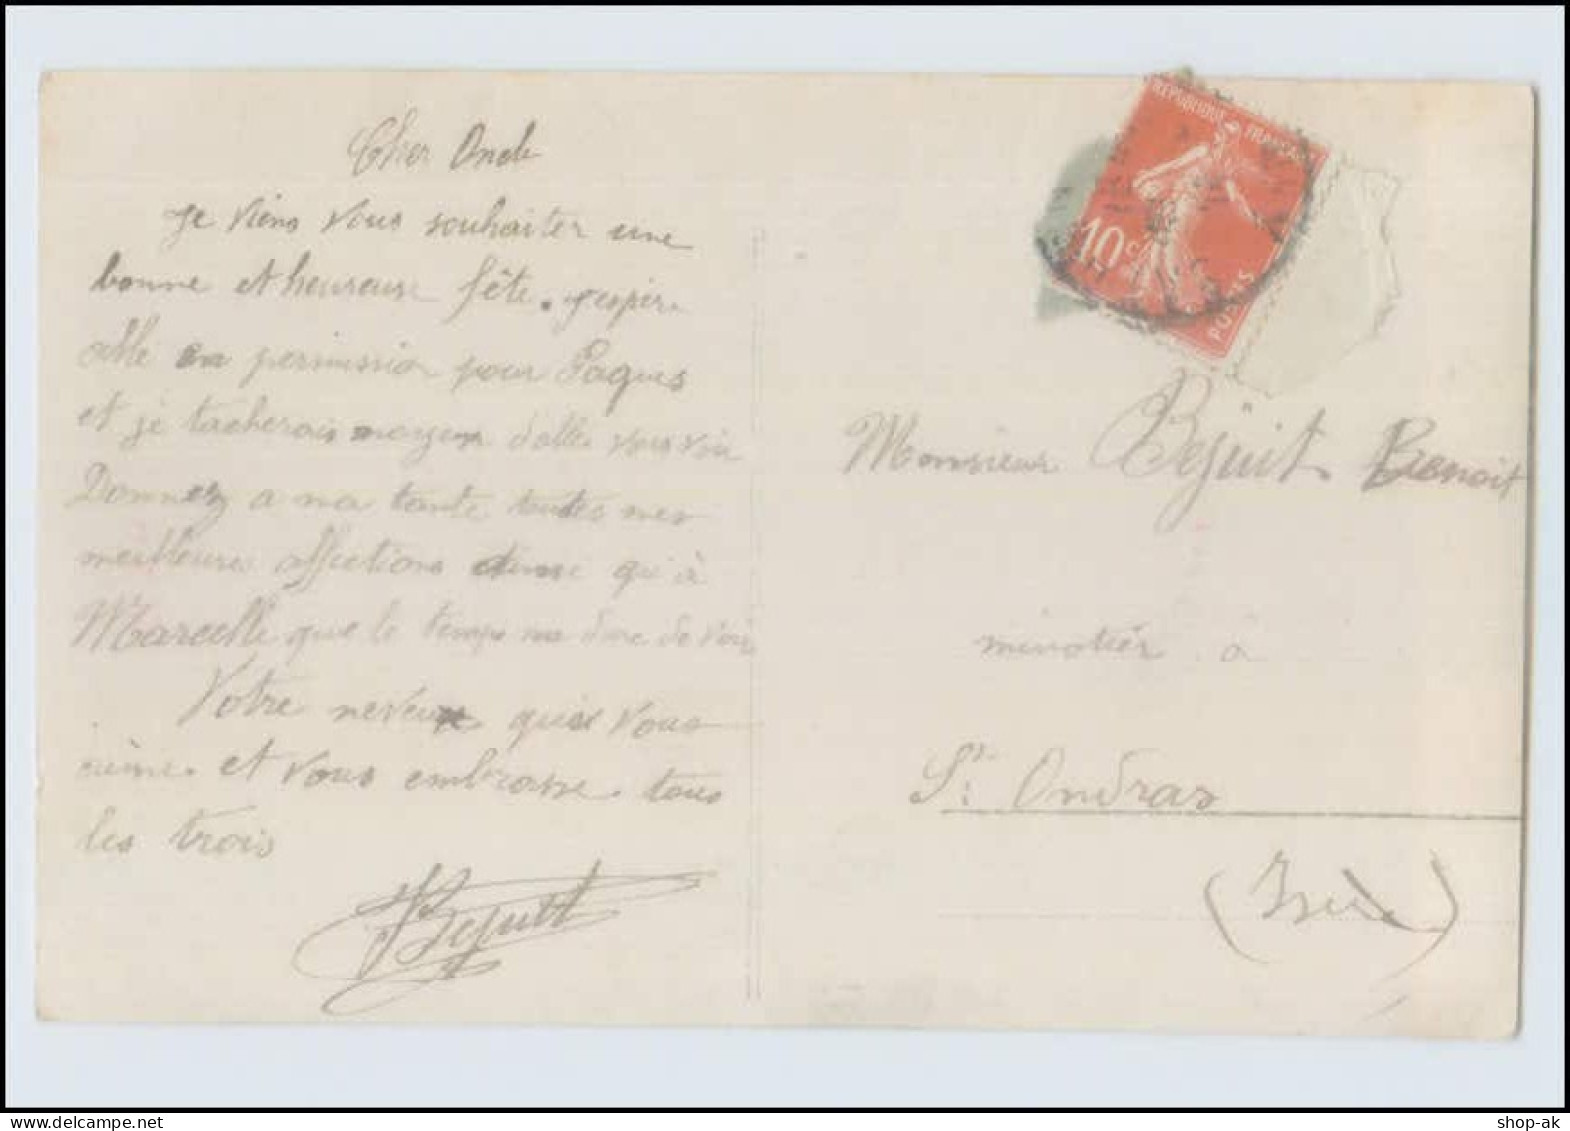 Cher Oncle
Je viens vous souhaiter une
bonne et heureuse fête. J'espère
allé en permission pour Paques
et je tacherais moyen d'aller vous voir
Donnez a ma tante toutes mes
meilleures affections qu'à
Marcelle que le temps me dure de voir
Votre neveux qui vous
aime et vous embrasse tous
les trois
Bejuit
REPUBLIQUE FRANÇAISE
10c
POSTES
Monsieur Bejuit Benoit
minotier à
St. Ondras
(Isère)
shop-ak